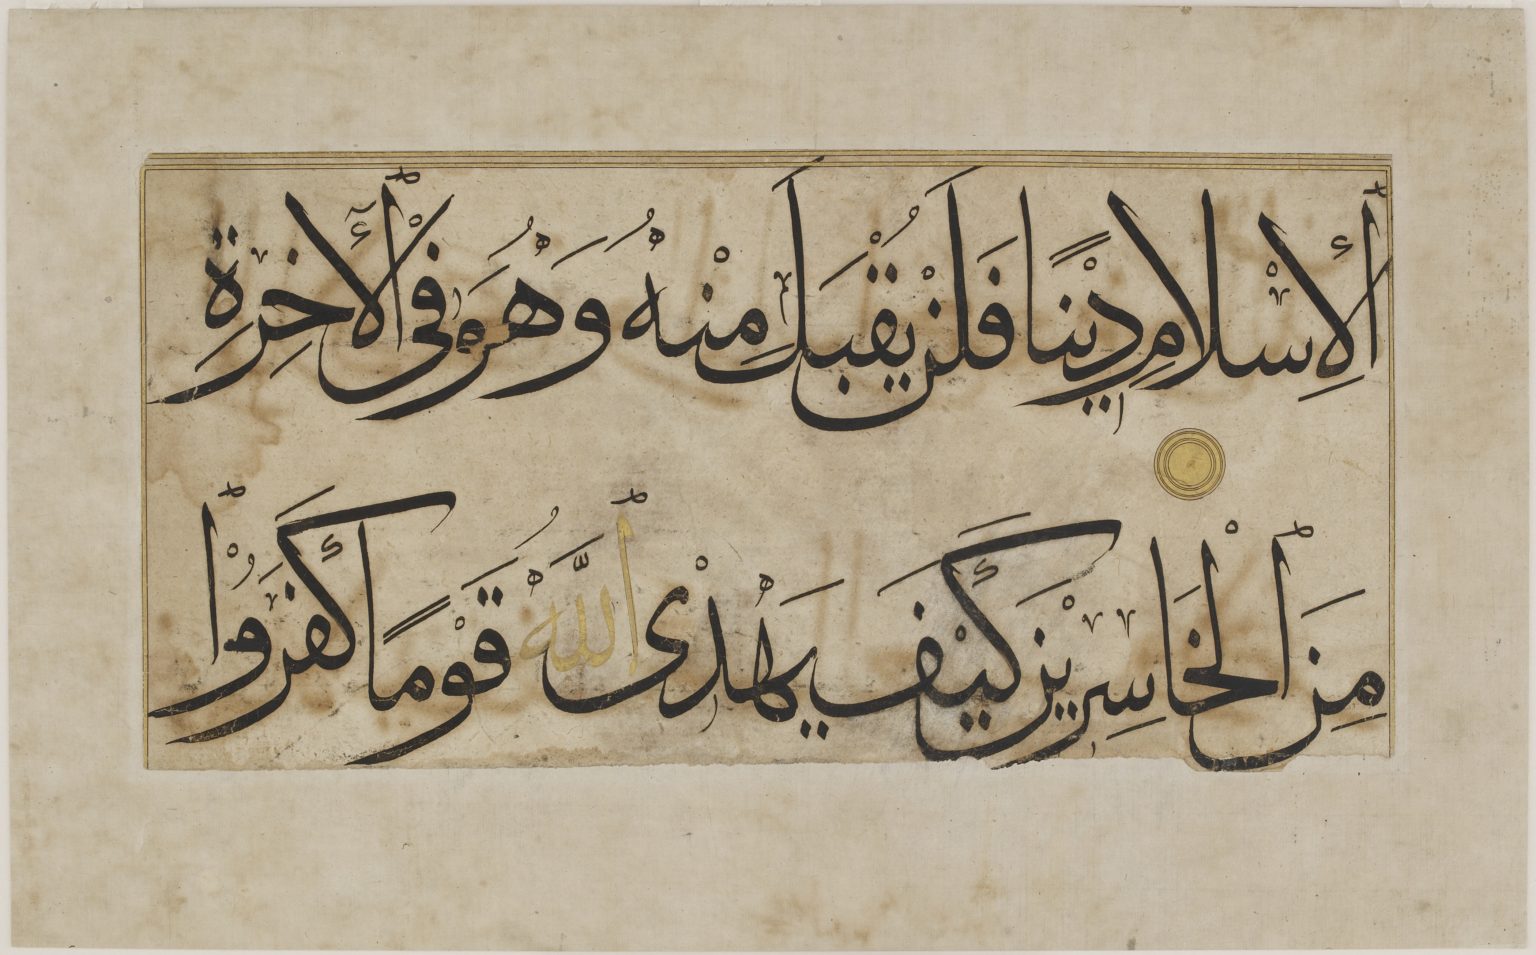 ٱلْإِسْلَامِ دِيْنًا فَلَنْ يُقْبَلَ مِنْهُ وَهُوَ فِى ٱلْأٓخِرَةِ
مِنَ ٱلْخَاسِرِيْنَ كَيْفَ يَهْدِىْ ٱللَّهُ قَوْمًا كَفَرُوْا